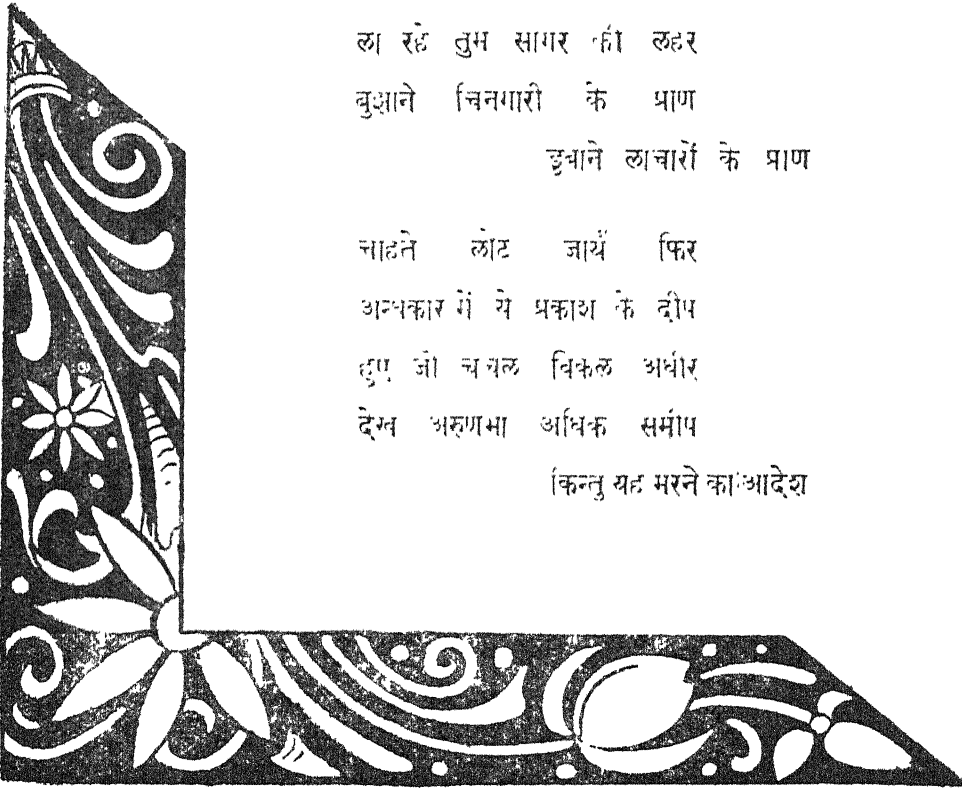 ला रहे तुम सागर की लहर
बुझाने चिनगारी के प्राण
डुबाने लाचारों के प्राण
चाहते लौट जायँ फिर
अन्धकार में ये प्रकाश के दीप
हुए जो चंचल विकल अधीर
देख अरुणभा अधिक समीप
किन्तु यह मरने का आदेश